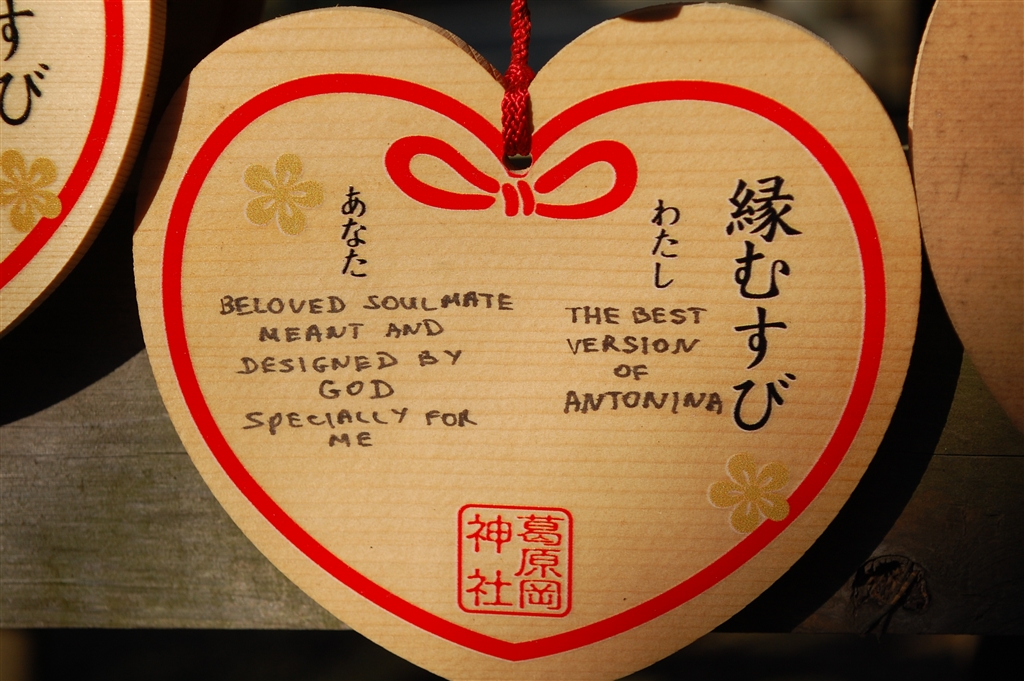 縁むすび
わたし
THE BEST
VERSION
OF
ANTONINA
あなた
BELOVED SOULMATE
MEANT AND
DESIGNED BY
GOD
SPECIALLY FOR
ME
葛原岡
神社
すび